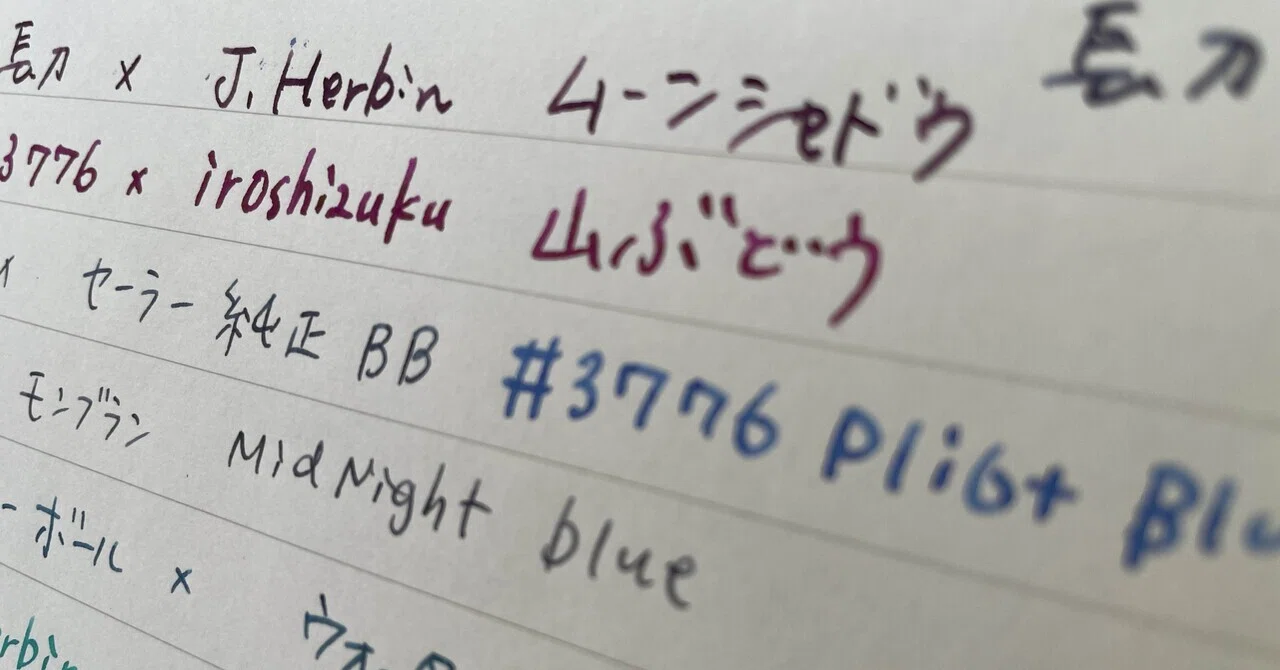 長刀 × J. Herbin ムーンシャドウ 長刀
3776 × iroshizuku 山ぶどう
× セーラー 純正 BB #3776 Pligt
モンブラン MidNight blue
ーボール ×